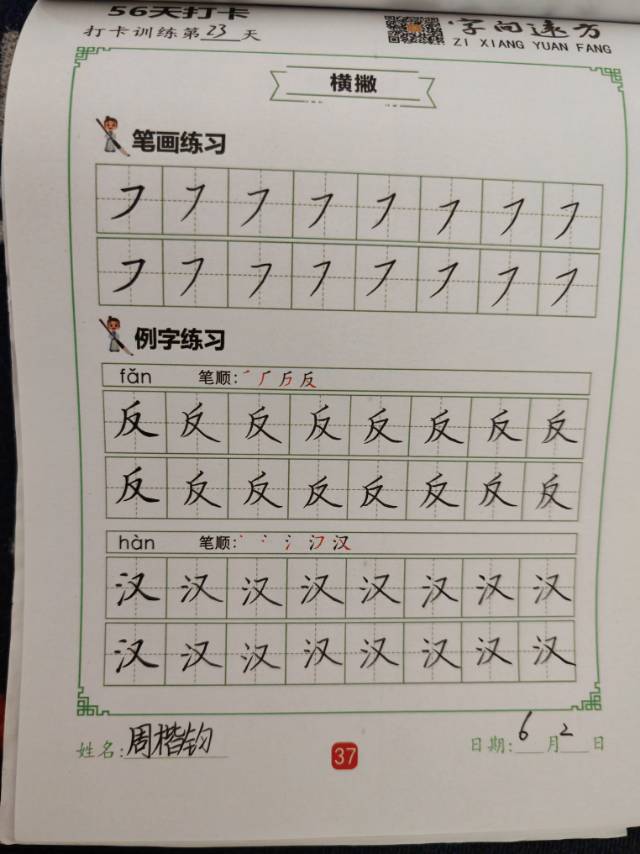 56天打卡
打卡训练第23天
字向远方
ZI XIANG YUAN FANG
横撇
笔画练习
㇇㇇㇇㇇㇇㇇㇇㇇
㇇㇇㇇㇇㇇㇇㇇㇇
例字练习
fǎn 笔顺: 反
反反反反反反反反
反反反反反反反反
hàn 笔顺: 丶 氵 汉
汉汉汉汉汉汉汉汉
汉汉汉汉汉汉汉汉
姓名:周楷钧
37
日期: 6月2日